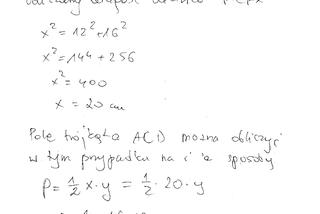 x² = 12² + 16²
x² = 144 + 256
x² = 400
x = 20 cm
Pole trójkąta ACD można obliczyć
w tym przypadku na
sposoby
P = 1/2 x · y = 1/2 · 20 · y